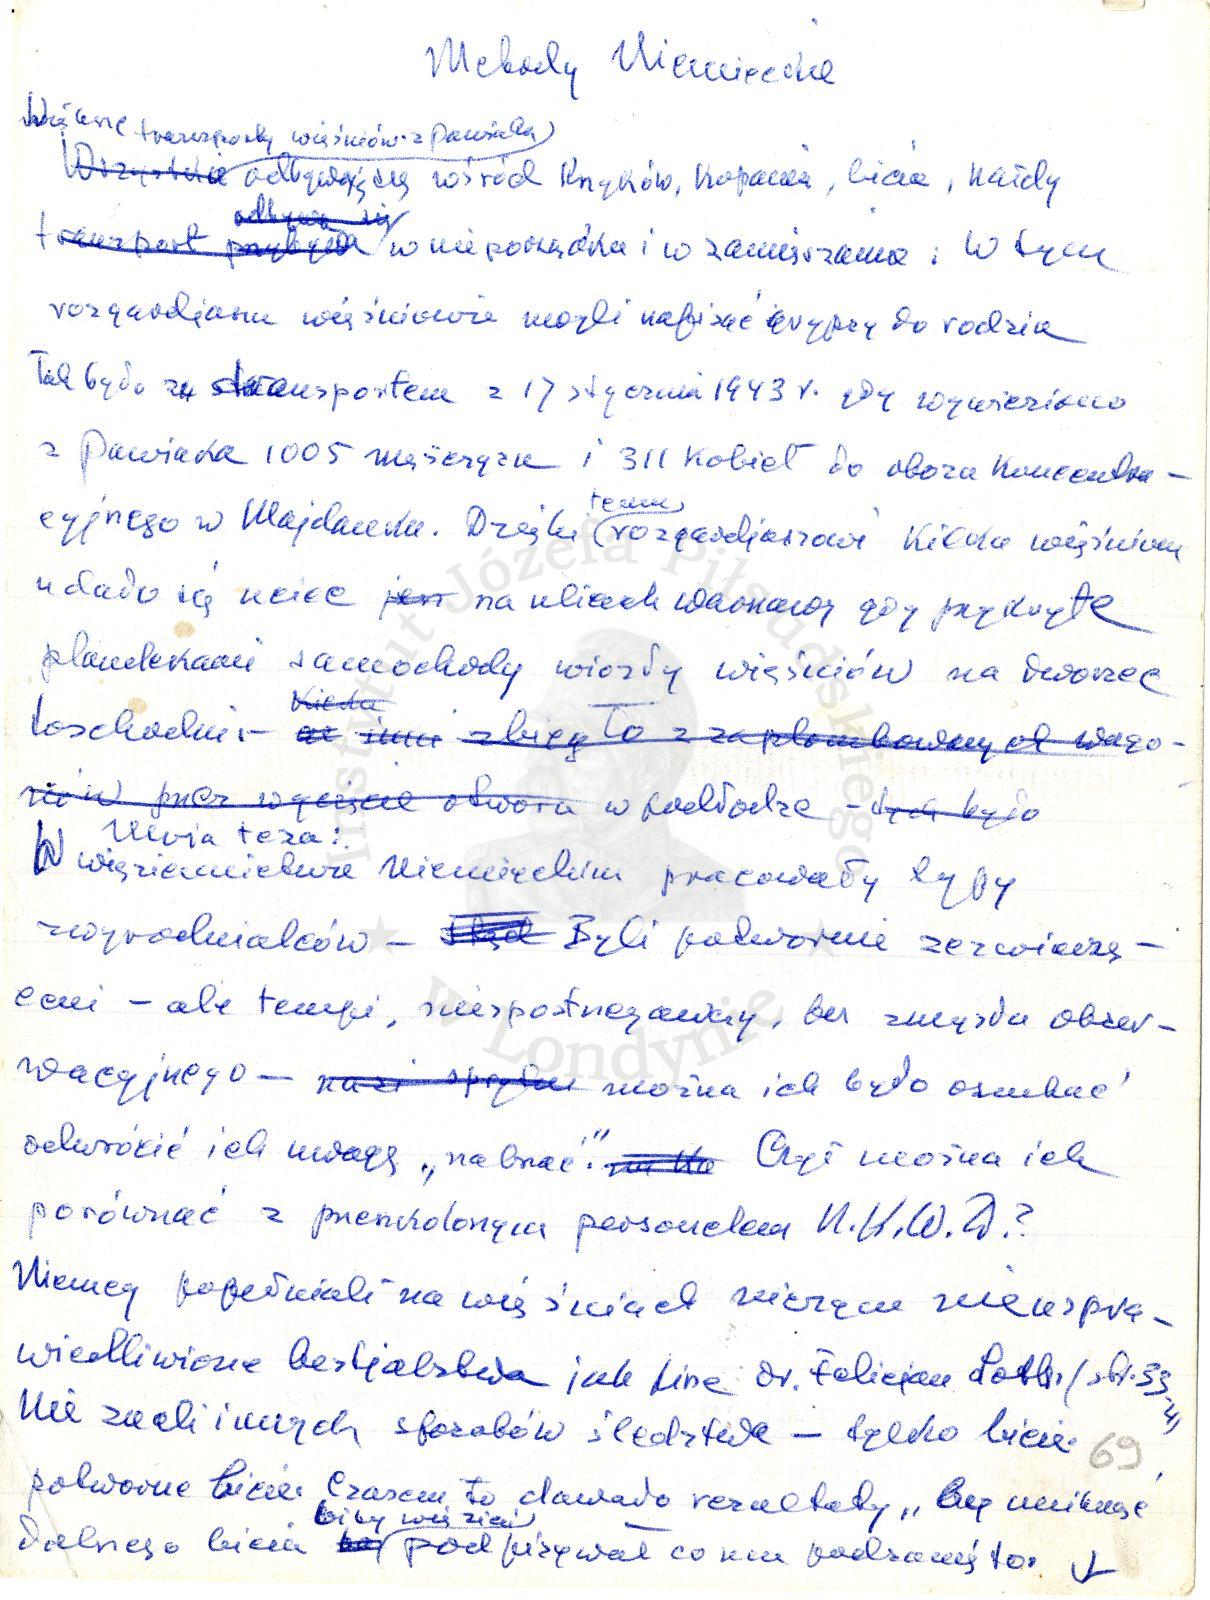 Metody Niemieckie
Większe transporty więźniów z Pawiaka
Wszystkie odbywają się wśród krzyków, kopania, bicia, każdy
odbywa się
transport przybywa w nieporządku i w zamieszaniu: W tym
rozgardjaszu więźniowie mogli napisać grypsy do rodzin
Tak było z transportem z 17 stycznia 1943 r. gdy wywieziono
z Pawiaka 1005 mężczyzn i 311 kobiet do obozu koncentra-
cyjnego w Majdanku. Dzięki temu rozgardjaszowi kilku więźniom
udało się uciec na ulicach Warszawy gdy przykryte
plandekami samochody wiozły więźniów na dworzec
Wschodni - zbiegło z zaplombowanych wago-
nów przez wycięcie otworu w podłodze - tych było
Moja teza:
W więziennictwie Niemieckim pracowały typy
zwyrodnialców - Byli potwornie zezwierzę-
ceni - ale tempi, niespostrzegawczy, bez zmysłu obser-
wacyjnego - można ich było oszukać
odwrócić ich uwagę „nabrać". Czyż można ich
porównać z przeszkolonym personelem N.K.W.D.?
Niemcy popełniali na więźniach niczym nieuspra-
wiedliwione bestjalstwa jak pisze dr. Felicjan Loth (str. 33
Nie znali innych sposobów śledztwa - tylko bicie
69
potworne bicie. Czasem to dawało rezultaty „by uniknąć
dalszego bicia bity więzień podpisywał co mu podsunięto.
Instytut Józefa Piłsudskiego
w Londynie